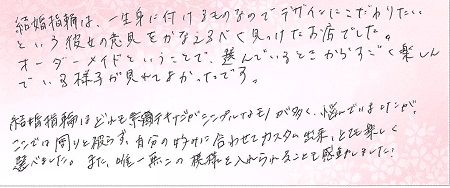 結婚指輪は、一生身に付けるものなのでデザインにこだわりたい
という彼女の意見をかなえるべく見つけたお店でした。
オーダーメイドということで、選んでいるところからすごく楽しん
でいる様子が見れてよかったです。
結婚指輪はどれも素敵ですがシンプルなモノが多く、悩んでいましたが、
ここでは周りと被らず、自分の好みに合わせてカスタム出来、とても楽しく
選べました。また、唯一無二の模様を入れられることで感動しました!